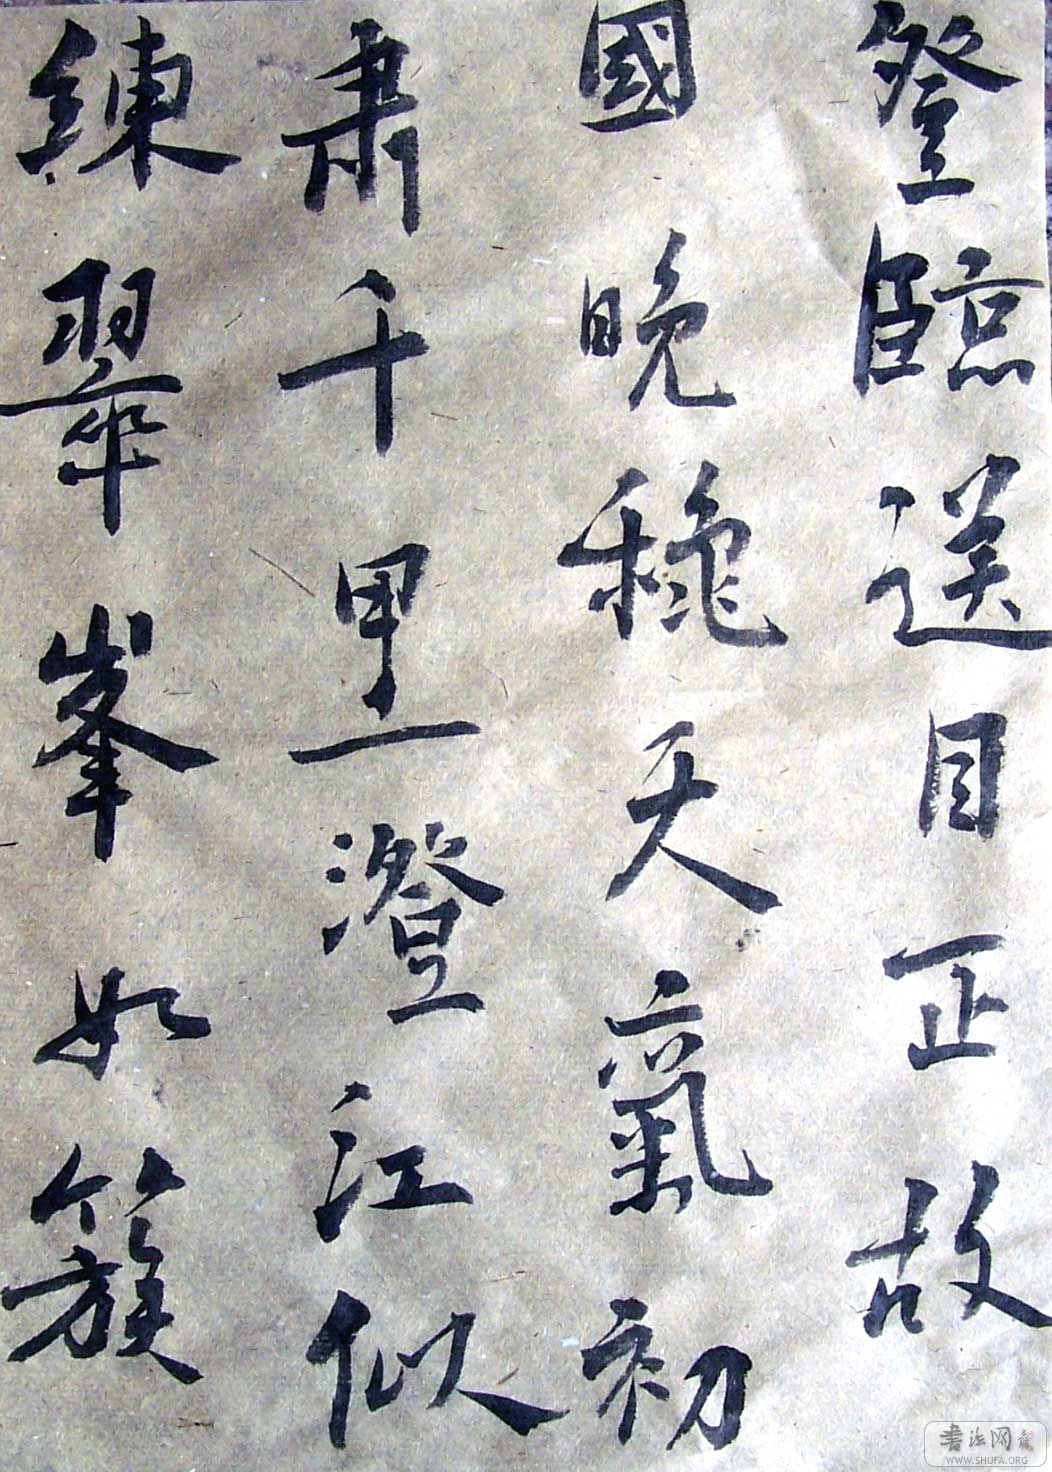 登臨送目正故
國晚穐天氣初
肅千里澄江似
練翠峯如簇
書法网
WWW.SHUFA.ORG